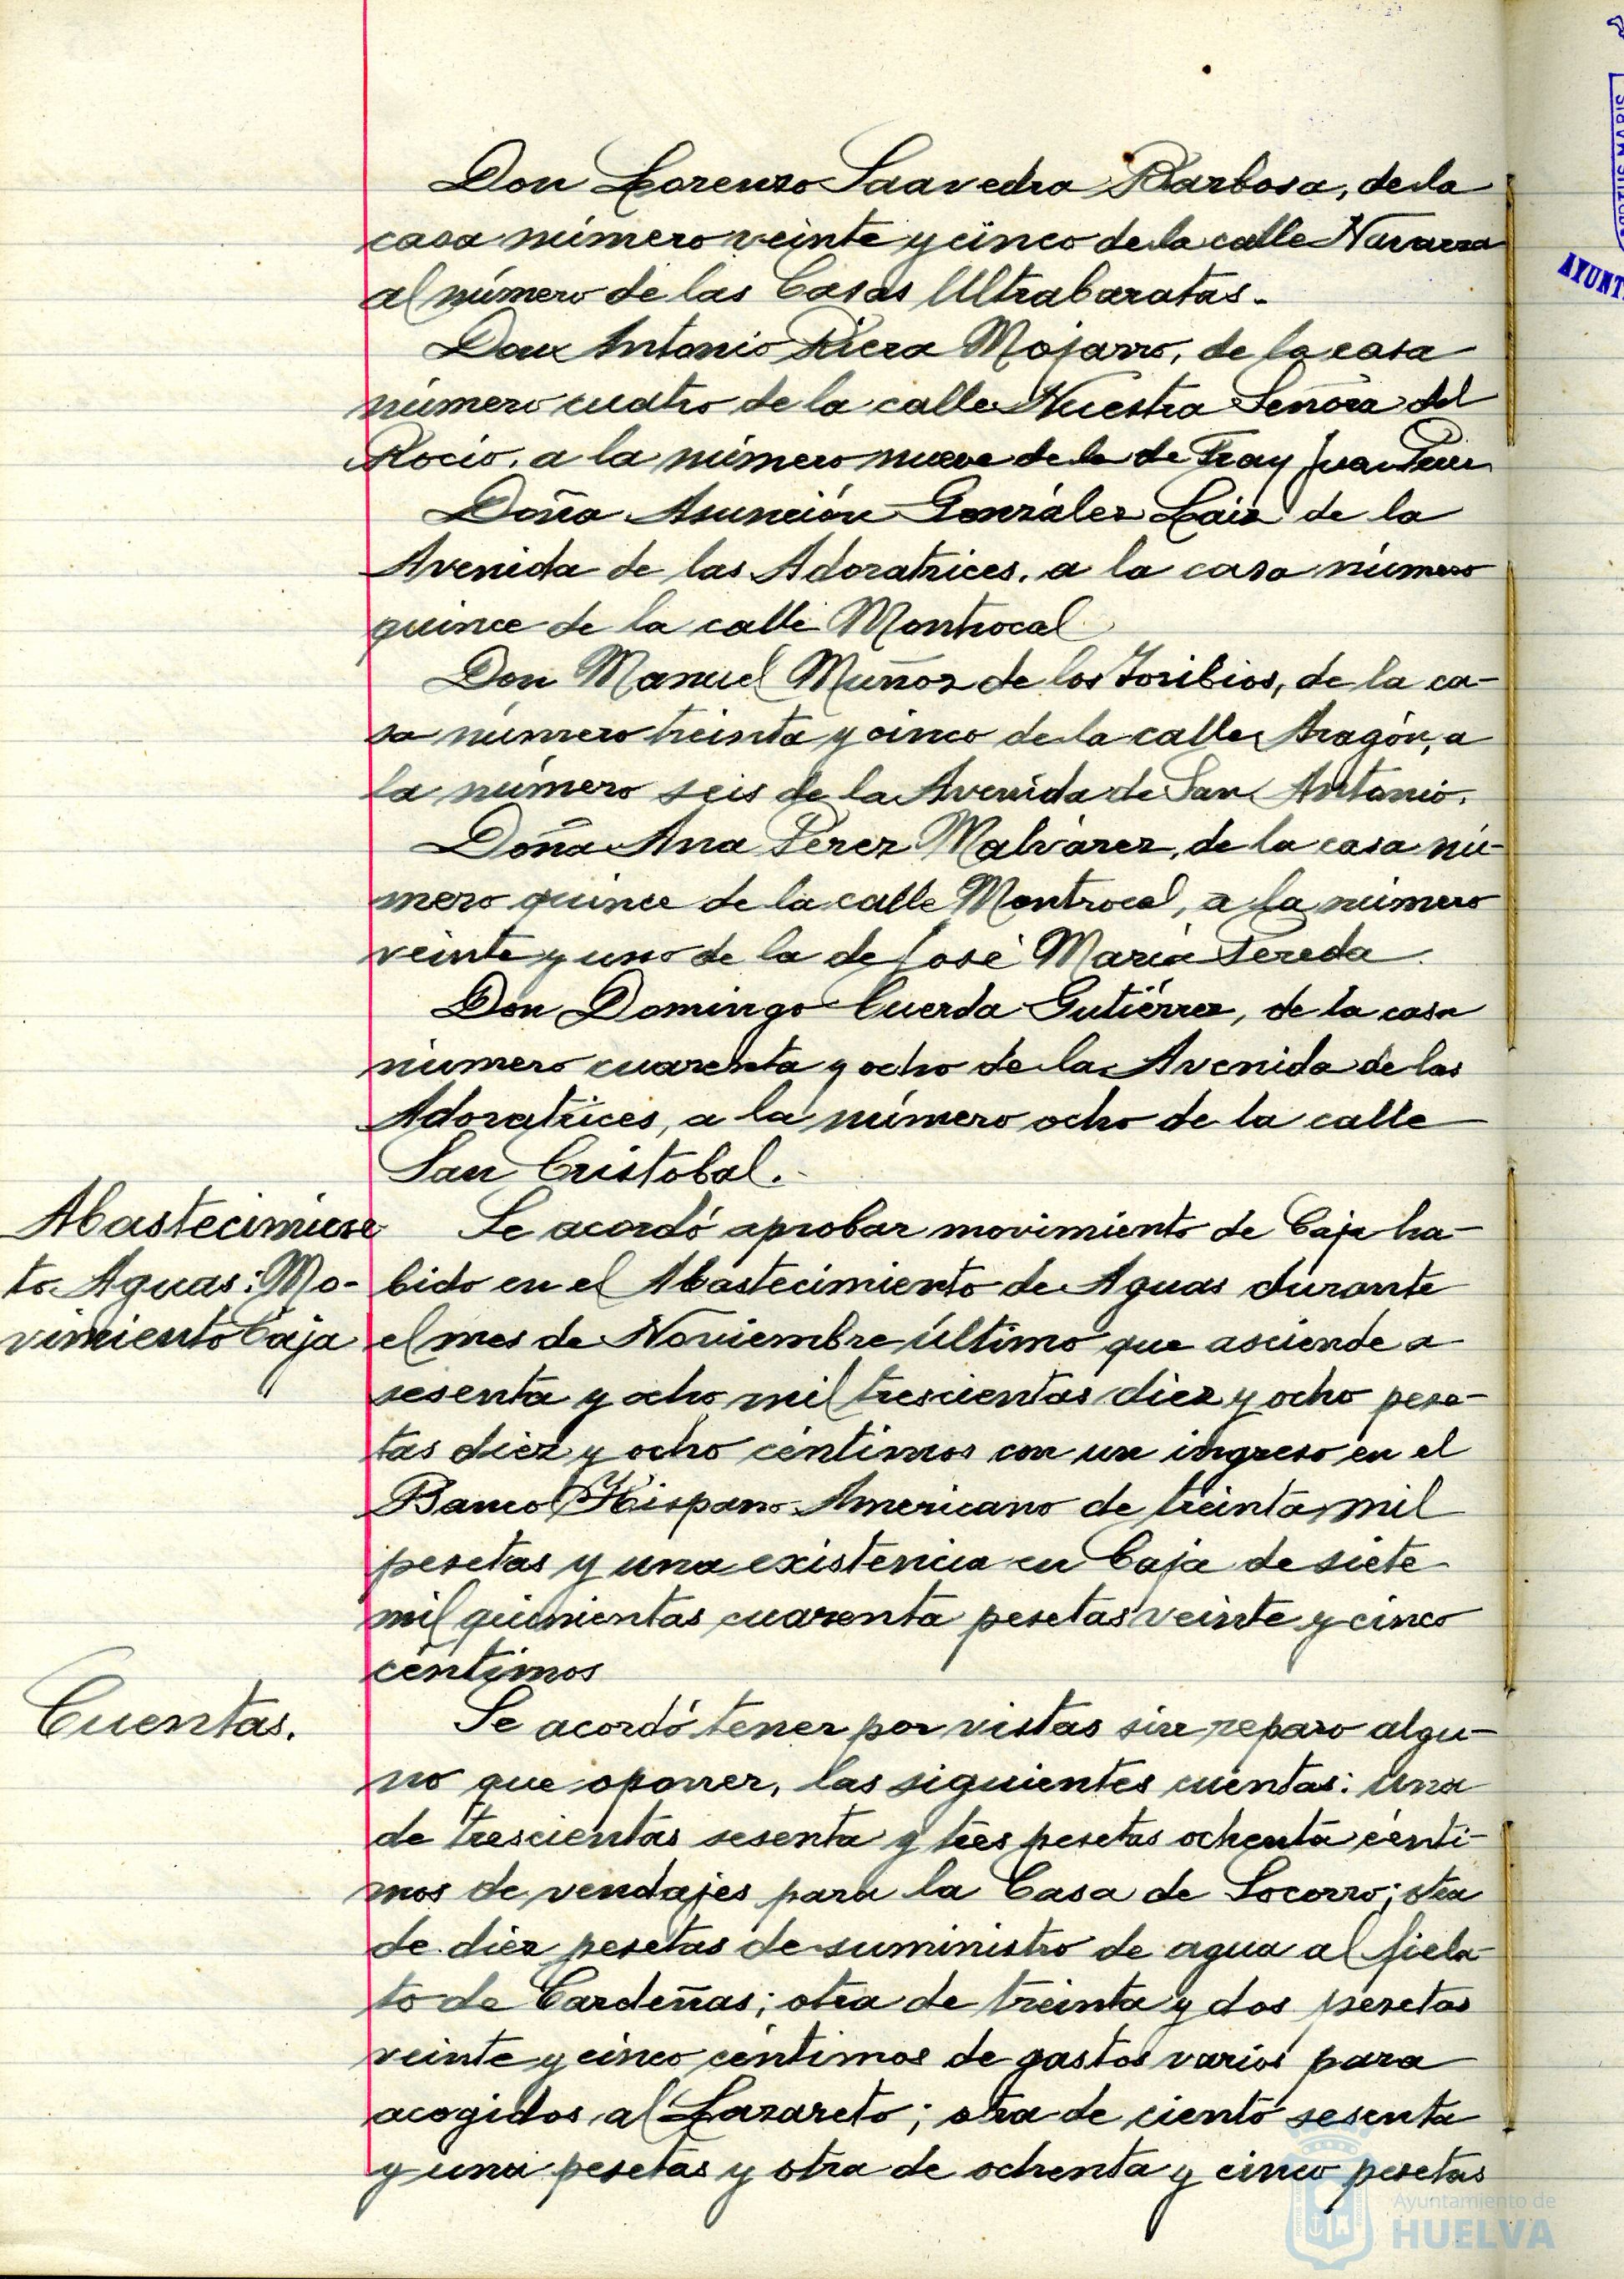 Don Lorenzo Saavedra Barbosa, de la
casa número veinte y cinco de la calle Navarra
al número de las Casas Ultrabaratas.
Don Antonio Riera Mojarro, de la casa
número cuatro de la calle Nuestra Señora del
Rocio, a la número nueve de la de Fray Juan Pérez
Doña Asunción González Laiz de la
Avenida de las Adoratrices, a la casa número
quince de la calle Montrocal
Don Manuel Muñoz de los Toribios, de la ca-
sa número treinta y cinco de la calle Aragón, a
la número seis de la Avenida de San Antonio.
Doña Ana Pérez Malvárez, de la casa nú-
mero quince de la calle Montrocal, a la número
veinte y uno de la de José María Pereda.
Don Domingo Cuerda Gutiérrez, de la casa
número cuarenta y ocho de la Avenida de las
Adoratrices, a la número ocho de la calle
San Cristobal.-
Abastecimien
to Aguas: Mo-
vimiento Caja
Se acordó aprobar movimiento de Caja ha-
bido en el Abastecimiento de Aguas durante
el mes de Noviembre último que asciende a
sesenta y ocho mil trescientas diez y ocho pese-
tas diez y ocho céntimos con un ingreso en el
Banco Hispano Americano de treinta mil
pesetas y una existencia en Caja de siete
mil quinientas cuarenta pesetas veinte y cinco
céntimos
Cuentas.
Se acordó tener por vistas sin reparo algu-
no que oponer, las siguientes cuentas: una
de trescientas sesenta y tres pesetas ochenta cénti-
mos de vendajes para la Casa de Socorro; otra
de diez pesetas de suministro de agua al fiela-
to de Cardeñas; otra de treinta y dos pesetas
veinte y cinco céntimos de gastos varios para
acogidos al Lazareto; otra de ciento sesenta
y una pesetas y otra de ochenta y cinco pesetas
AYUNT
Ayuntamiento de
HUELVA